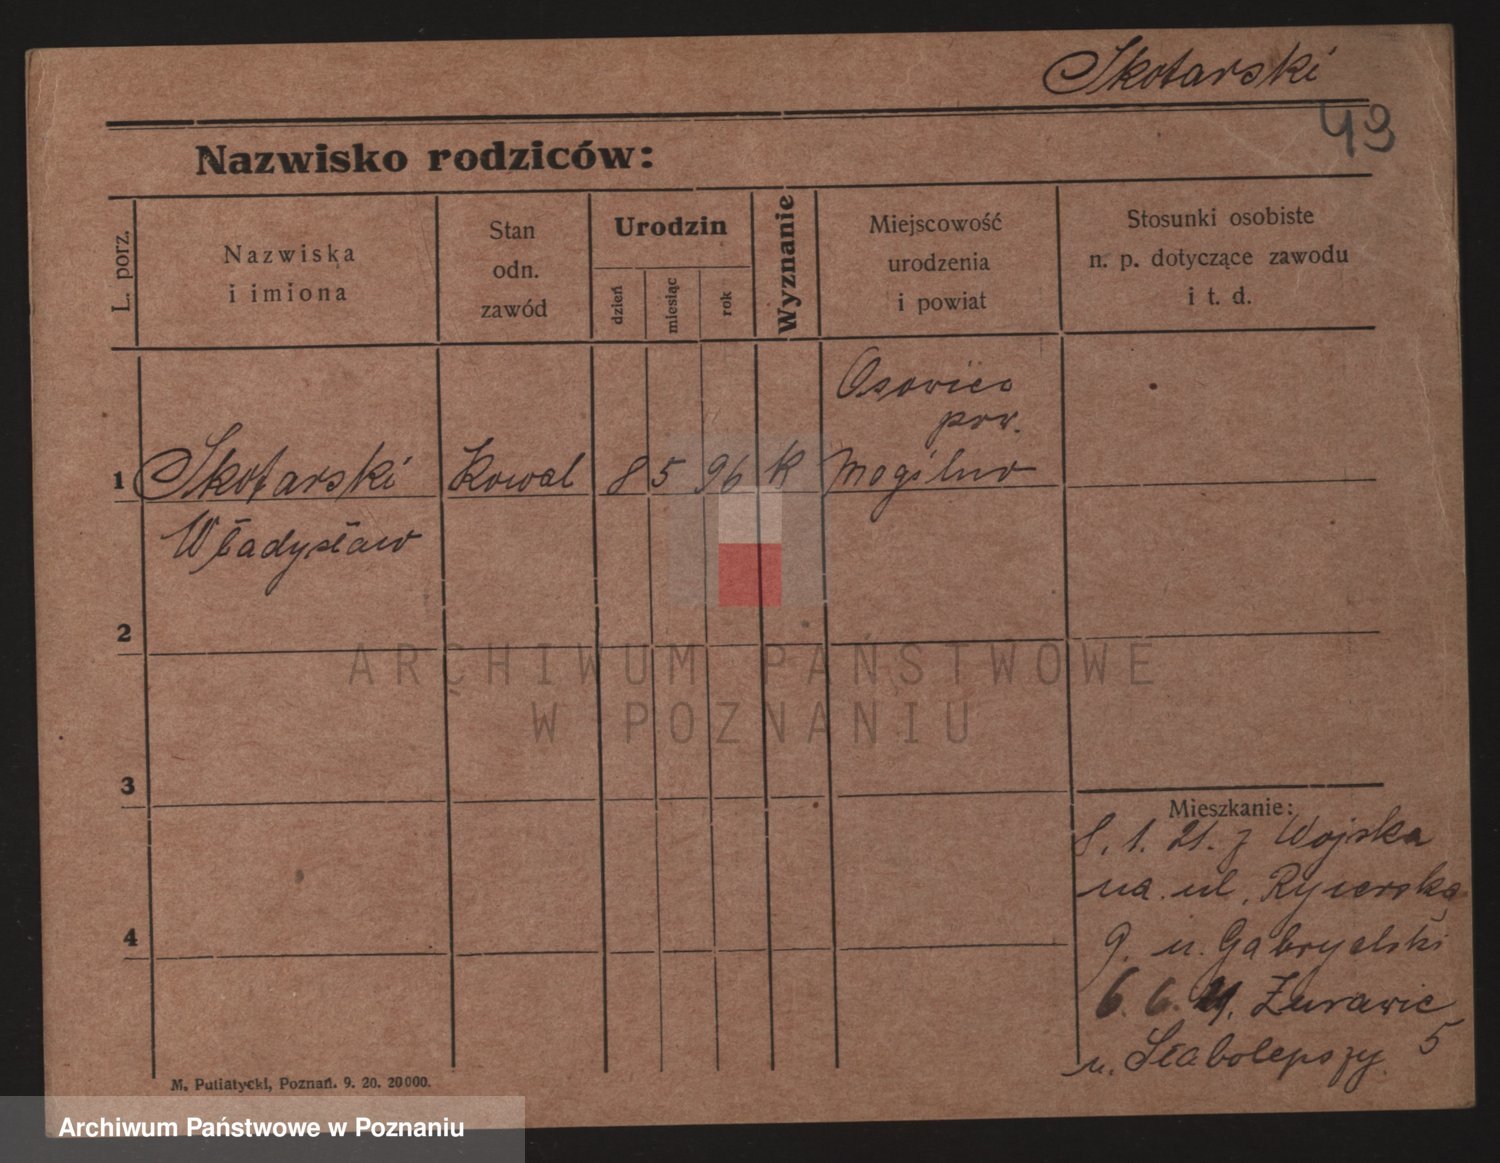 Skotarski
43
Nazwisko rodziców:
L. porz.
Nazwiska
i imiona
Stan
odn.
zawód
Urodzin
dzień
miesiąc
rok
Wyznanie
Miejscowość
urodzenia
i powiat
Stosunki osobiste
n. p. dotyczące zawodu
i t. d.
Osowiec
pow.
1 Skotarski Kowal 8 5 96 K Mogilno
Władysław
2
ARCHIWUM PAŃSTWOWE
W POZNANIU
3
Mieszkanie:
8. 1. 21. z Wojska
na ul. Rycerska
9. u. Gabryelski
4
6. 6. 21. Zurawie
5
u. Słabolepszy
M. Putiatycki, Poznań. 9. 20. 20000.
Archiwum Państwowe w Poznaniu